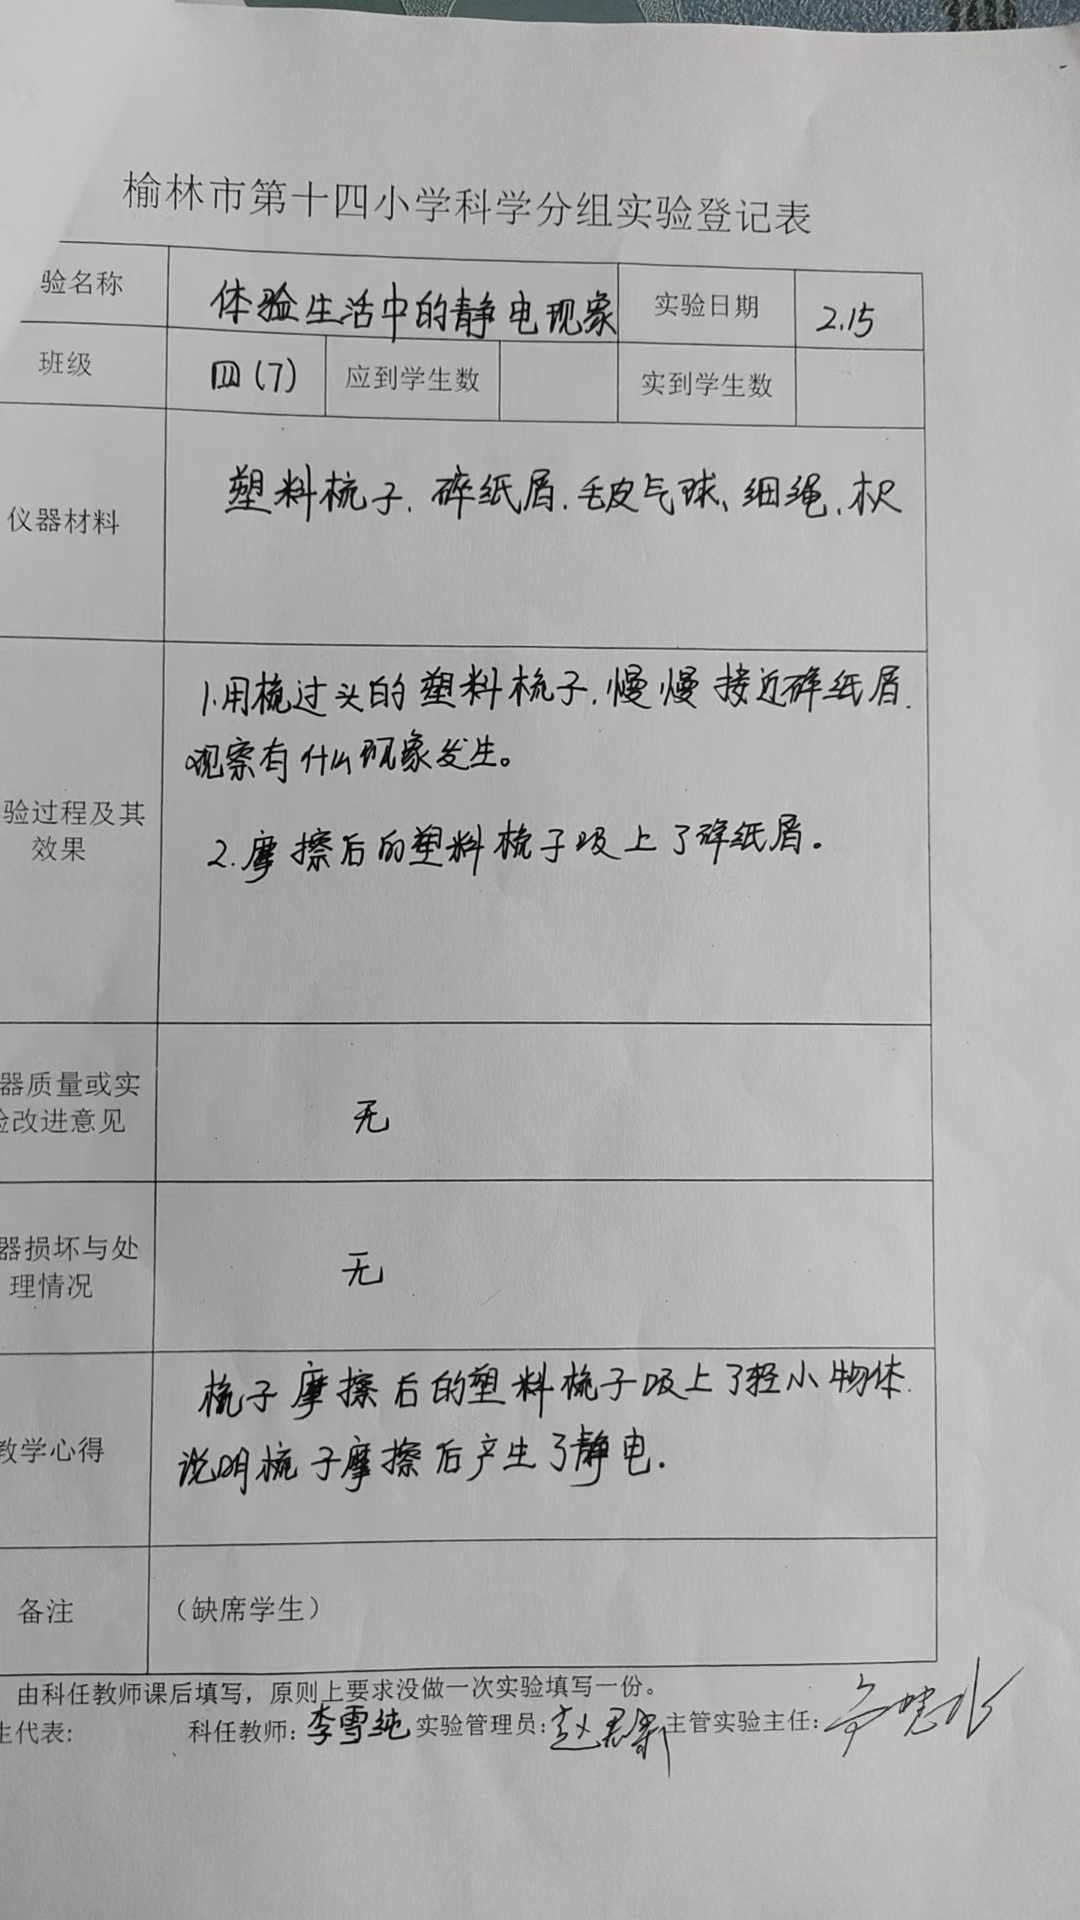 榆林市第十四小学科学分组实验登记表
验名称 体验生活中的静电现象 实验日期 2.15
班级 四(7) 应到学生数 实到学生数
仪器材料 塑料梳子、碎纸屑、毛皮气球、细绳、木尺
1.用梳过头的塑料梳子,慢慢接近碎纸屑,
观察有什么现象发生。
验过程及其
效果
2.摩擦后的塑料梳子吸上了碎纸屑。
器质量或实
验改进意见
无
器损坏与处
理情况
无
梳子摩擦后的塑料梳子吸上了轻小物体.
教学心得 说明梳子摩擦后产生了静电.
备注 (缺席学生)
由科任教师课后填写,原则上要求没做一次实验填写一份。
生代表: 科任教师:李雪纯 实验管理员: 主管实验主任: